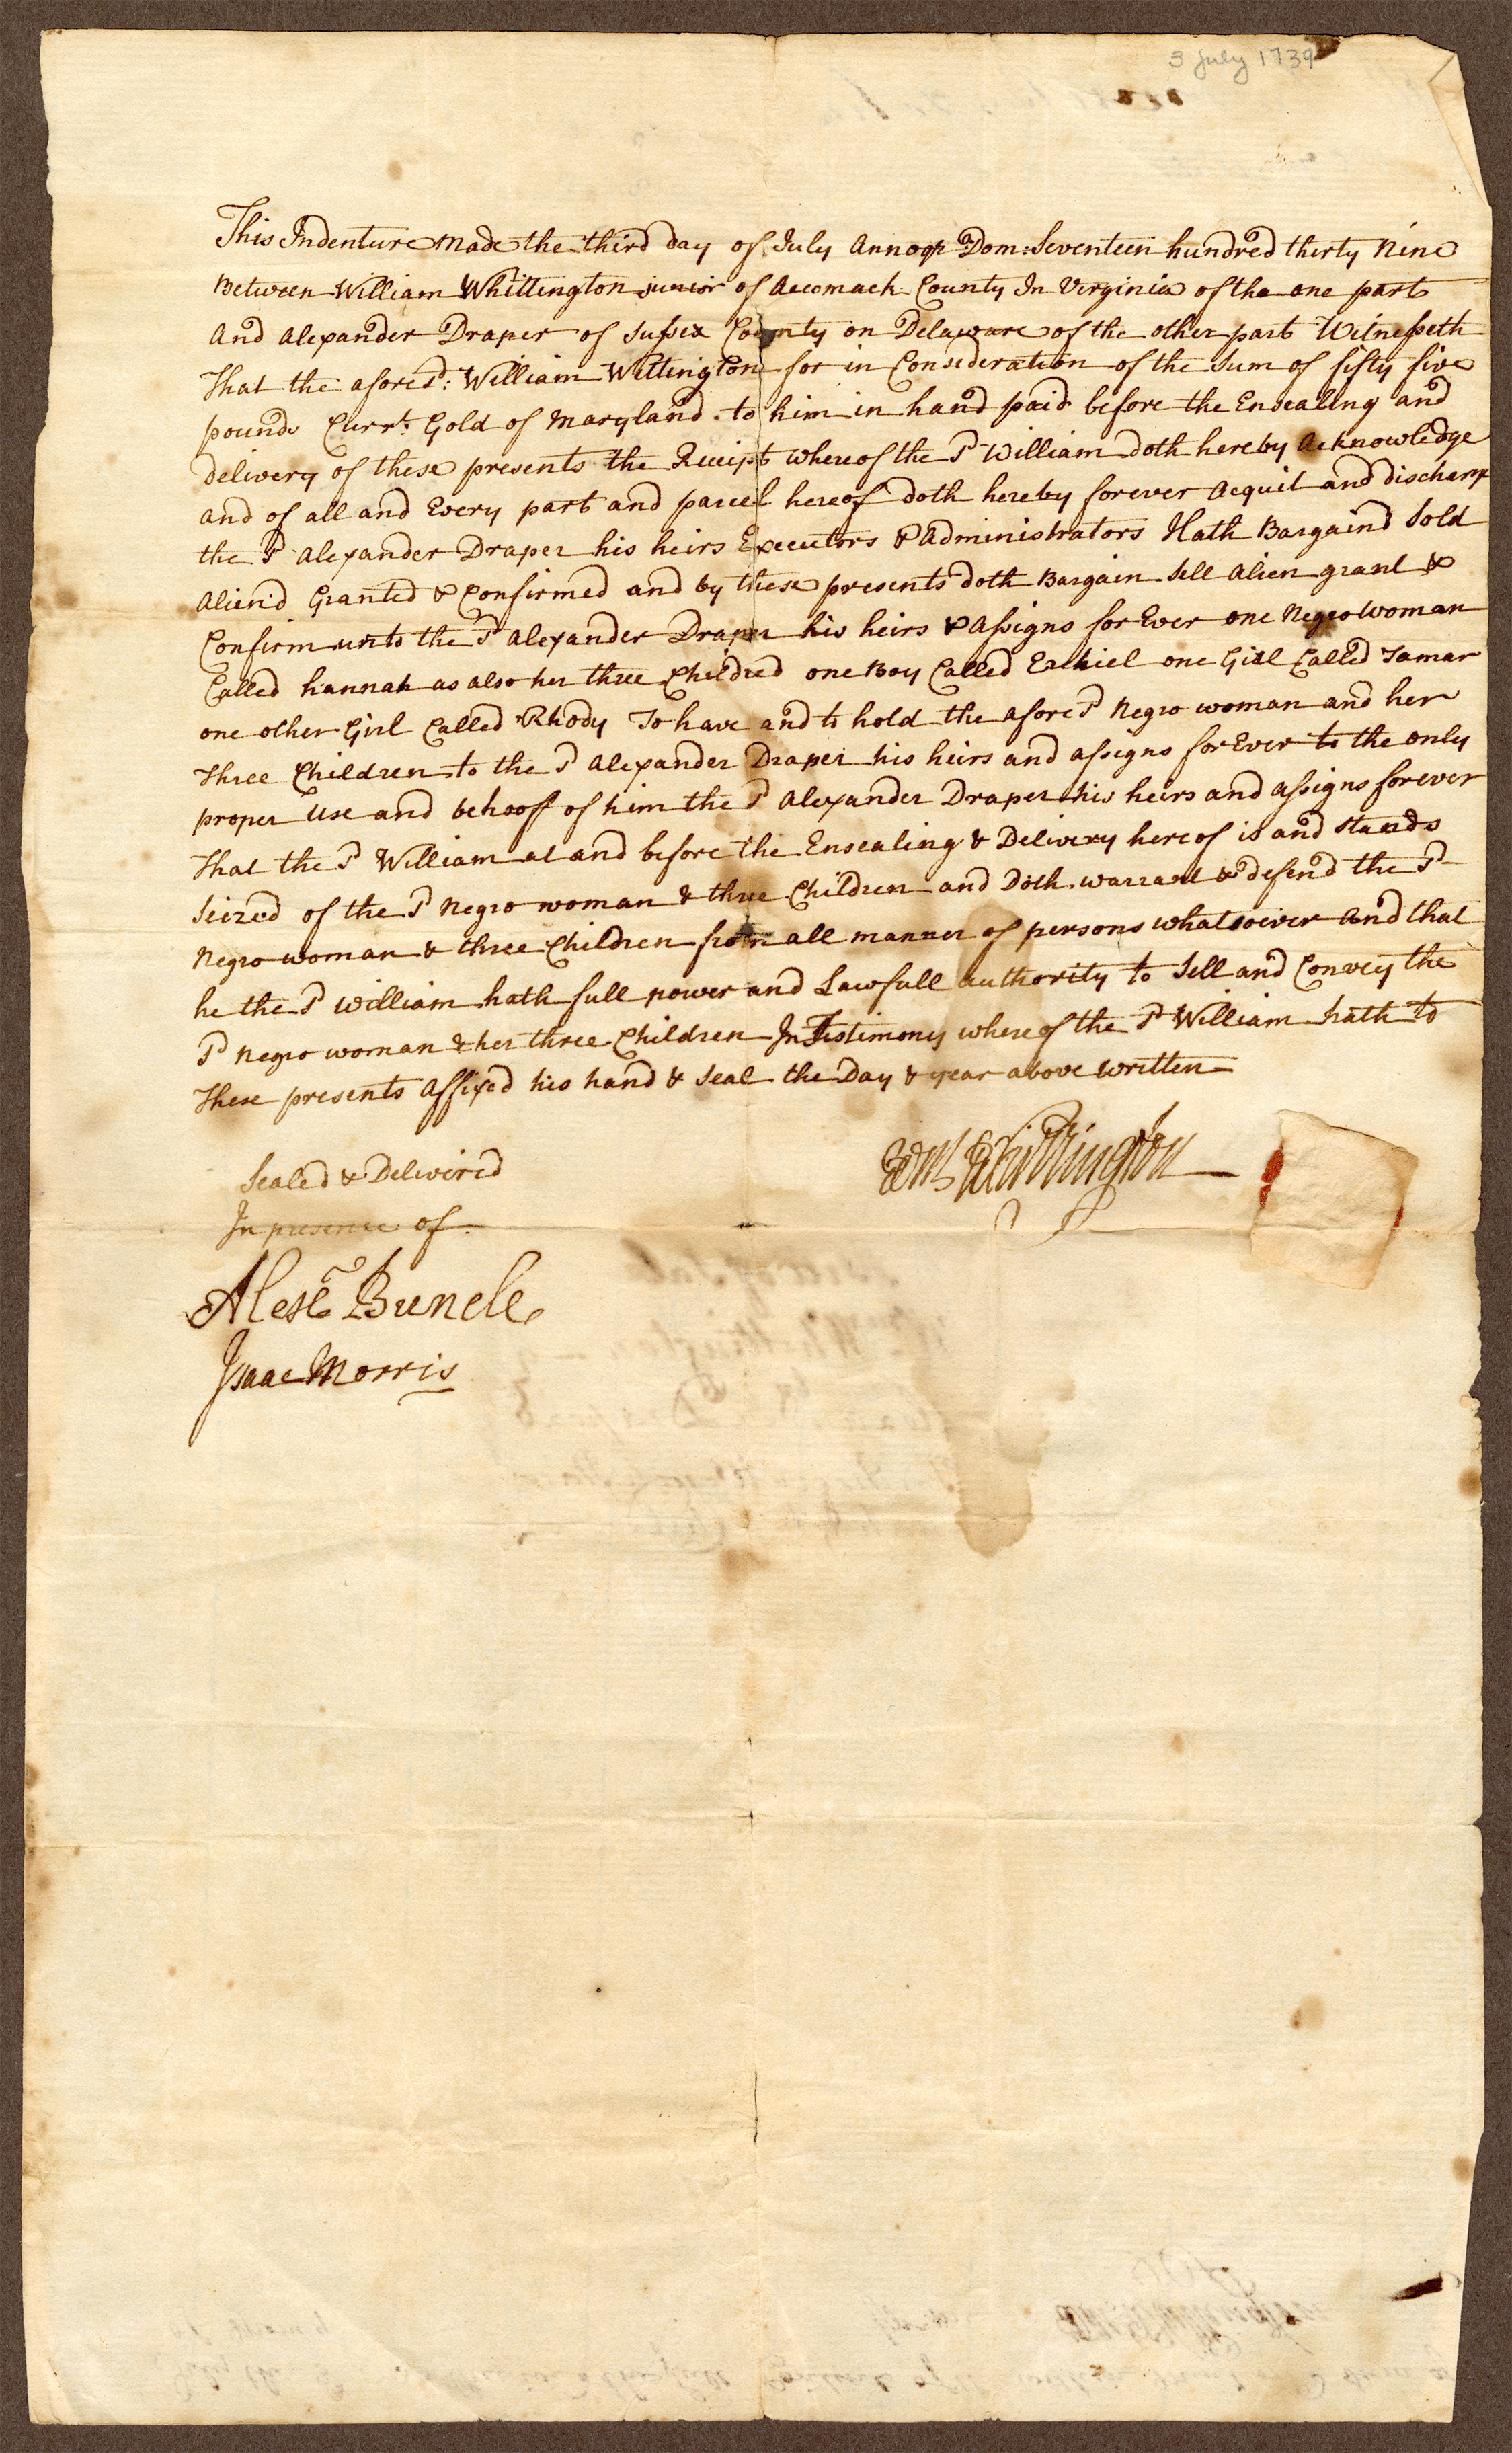 3 July 1739
This Indenture Made the third day of July Annoqr Dom: Seventeen hundred thirty Nine
Between William Whittington junior of Accomack County In Virginia of the one part
And Alexander Draper of Sussex County on Delaware of the other part Witnesseth
That the afores.d: William Wittington for in Consideration of the Sum of fifty five
pounds Curr.t Gold of Maryland to him in hand paid before the Ensealing and
delivery of these presents the Receipt whereof the S.d William doth hereby Acknowledge
and of all and Every part and parcel hereof doth hereby forever Acquit and discharge
the S.d Alexander Draper his heirs Executors & Administrators Hath Bargaind Sold
Aliend Granted & Confirmed and by these presents doth Bargain Sell Alien grant &
Confirm unto the S.d Alexander Draper his heirs & Assigns for Ever one Negro Woman
Called hannah as also her three Children one Boy Called Ezekiel one Girl Called Tamar
one other Girl Called Rhody To have and to hold the afores.d Negro woman and her
Three Children to the S.d Alexander Draper his heirs and assigns for Ever to the only
proper Use and behooff of him the S.d Alexander Draper his heirs and assigns forever
That the S.d William at and before the Ensealing & Delivery hereof is and stands
Seized of the S.d Negro woman & three Children and Doth warrant & defend the S.d
Negro woman & three Children from all manner of persons whatsoever And that
he the S.d William hath full power and Lawfull authority to Sell and Convey the
S.d Negro woman & her three Children In Testimony whereof the S.d William hath to
These presents Affixed his hand & Seal the Day & year above written
Wm Whittington
Sealed & Delivered
In presence of
Alexr Buncle
Isaac Morris